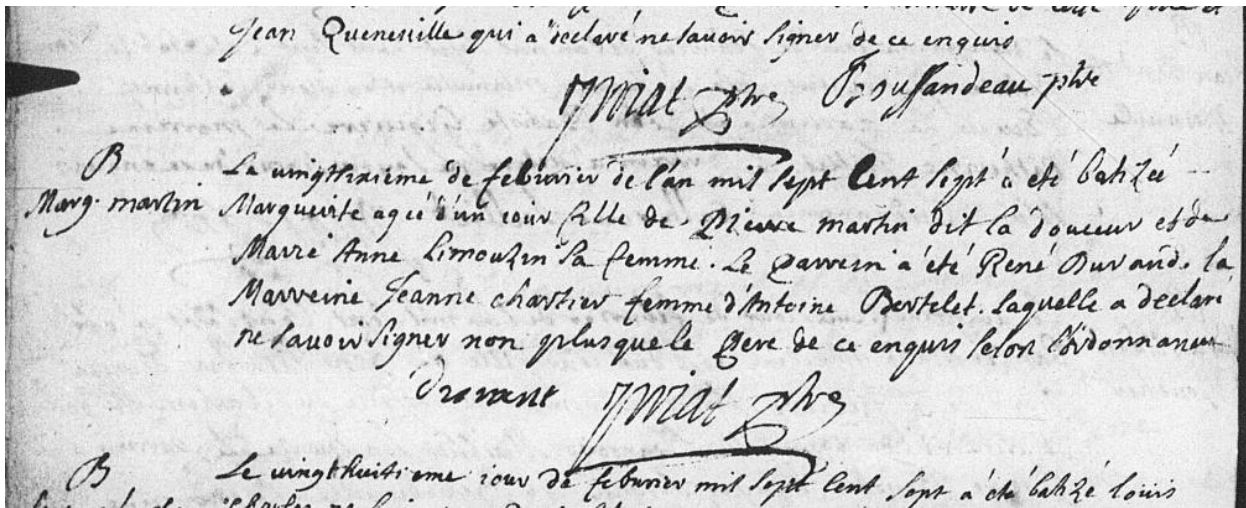 Jean Queneville qui a declaré ne savoir signer de ce enquis
Priat ptre
B
Le vingtsixieme de febvrier de l'an mil sept cent sept à été batizé
Marg. martin
Marguerite agée d'un jour fille de Pierre martin dit la douceur et de
Marie Anne Limouzin sa femme. Le parrein a été René Durand. la
Marreine Jeanne chartier femme d'Antoine Bertelet. laquelle a declaré
ne savoir signer non plusque le pere de ce enquis selon l'ordonnance
Priat ptre
B
Le vingthuitieme jour de febvrier mil sept cent sept a été batizé louis